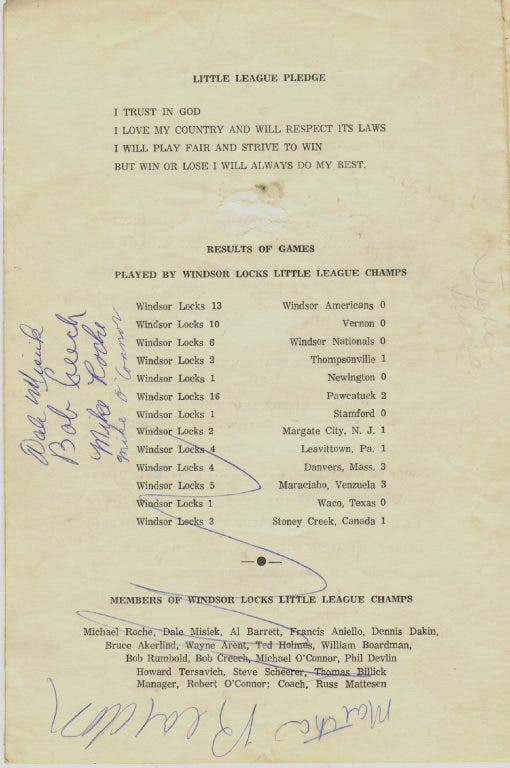 LITTLE LEAGUE PLEDGE
I TRUST IN GOD
I LOVE MY COUNTRY AND WILL RESPECT ITS LAWS
I WILL PLAY FAIR AND STRIVE TO WIN
BUT WIN OR LOSE I WILL ALWAYS DO MY BEST.
RESULTS OF GAMES
PLAYED BY WINDSOR LOCKS LITTLE LEAGUE CHAMPS
Windsor Locks 13 Windsor Americans 0
Windsor Locks 10 Vernon 0
Windsor Locks 6 Windsor Nationals 0
Windsor Locks 2 Thompsonville 1
Windsor Locks 1 Newington 0
Windsor Locks 16 Pawcatuck 2
Windsor Locks 1 Stamford 0
Windsor Locks 2 Margate City, N. J. 1
Windsor Locks 4 Leavittown, Pa. 1
Windsor Locks 4 Danvers, Mass. 3
Windsor Locks 5 Maraciabo, Venzuela 3
Windsor Locks 1 Waco, Texas 0
Windsor Locks 3 Stoney Creek, Canada 1
Dale Misiek
Bob Creech
Mike Roche
Mike O'Connor
MEMBERS OF WINDSOR LOCKS LITTLE LEAGUE CHAMPS
Michael Roche, Dale Misiek, Al Barrett, Francis Aniello, Dennis Dakin,
Bruce Akerlind, Wayne Arent, Ted Holmes, William Boardman,
Bob Rumbold, Bob Creech, Michael O'Connor, Phil Devlin
Howard Tersavich, Steve Scheerer, Thomas Billick
Manager, Robert O'Connor; Coach, Russ Mattesen
Martha Reardon